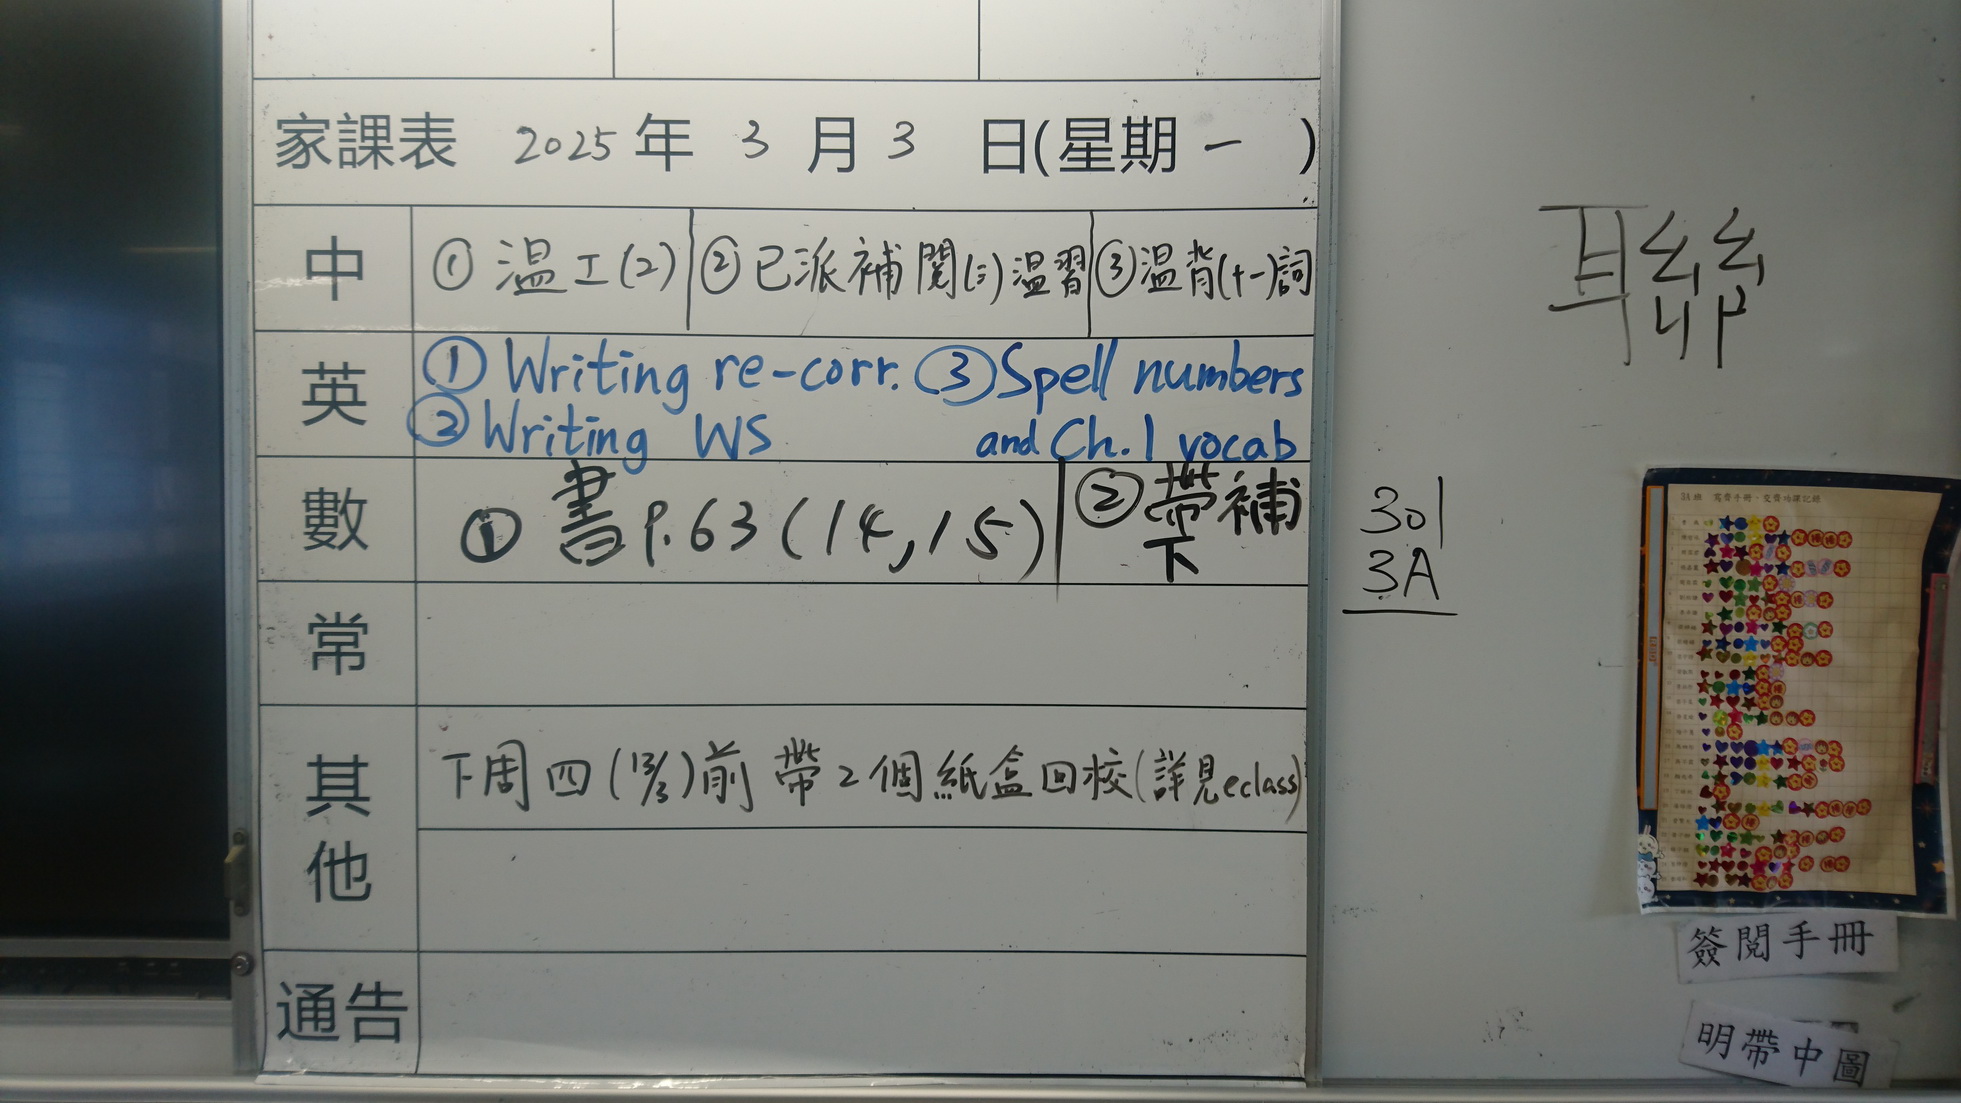 家課表 2025 年 3 月 3 日(星期 一 )
中 ① 温工(2) ② 已派補閱(三)温習 ③ 温背(十一)詞
英 ① Writing re-corr. ③ Spell numbers
② Writing WS and Ch.1 vocab
數 ① 書 P.63 (14,15) ② 帶補
下
常
其他 下周四(13/3)前帶2個紙盒回校(詳見eclass)
通告
聯
301
3A
簽閱手冊
明帶中圖